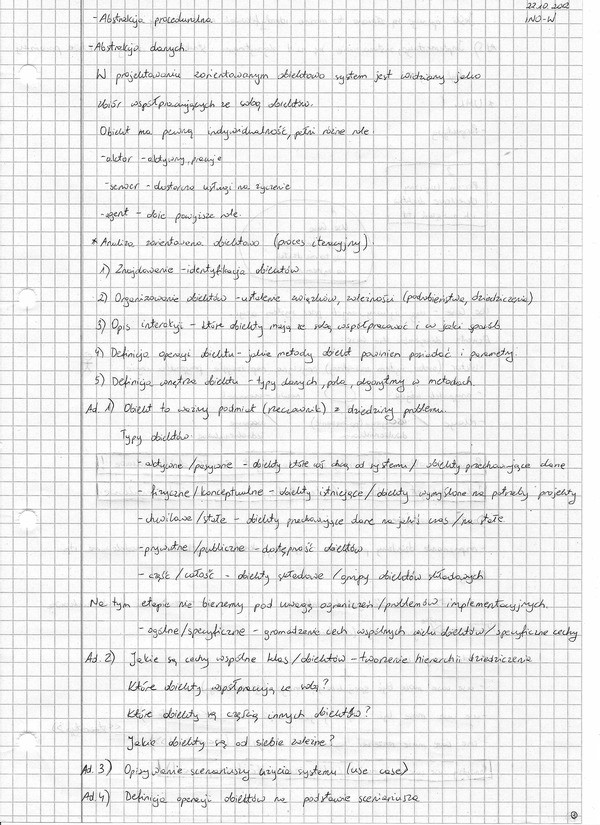 22.10.2012
INO-W
- Abstrakcja proceduralna
- Abstrakcja danych
W projektowaniu zorientowanym obiektowo system jest widziany jako
zbiór współpracujących ze sobą obiektów.
Obiekt ma pewną indywidualność, pełni różne role:
- aktor - aktywny, pracuje
- serwer - dostarcza usługi na życzenie
- agent - obie powyższe role.
* Analiza zorientowana obiektowo (proces iteracyjny).
1) Znajdowanie - identyfikacja obiektów
2) Organizowanie obiektów - ustalenie związków, zależności (podobieństwa, dziedziczenie)
3) Opis interakcji - które obiekty mają ze sobą współpracować i w jaki sposób
4) Definicja operacji obiektu - jakie metody obiekt powinien posiadać i parametry.
5) Definicja wnętrza obiektu - typy danych, pola, algorytmy w metodach.
Ad. 1) Obiekt to ważny podmiot (rzeczownik) z dziedziny problemu.
Typy obiektów:
- aktywne/pasywne - obiekty które coś chcą od systemu/ obiekty przechowujące dane
- fizyczne/konceptualne - obiekty istniejące/obiekty wymyślone na potrzeby projektu
- chwilowe/stałe - obiekty przechowujące dane na jakiś czas/na stałe
- prywatne/publiczne - dostępność obiektów
- część/całość - obiekty składowe/grupy obiektów składowych
Na tym etapie nie bierzemy pod uwagę ograniczeń/problemów implementacyjnych.
- ogólne/specyficzne - gromadzenie cech wspólnych wielu obiektów/specyficzne cechy
Ad. 2) Jakie są cechy wspólne klas/obiektów - tworzenie hierarchii dziedziczenia
Które obiekty współpracują ze sobą?
Które obiekty są częścią innych obiektów?
Jakie obiekty są od siebie zależne?
Ad. 3) Opisywanie scenariuszy użycia systemu (use case)
Ad. 4) Definicja operacji obiektów na podstawie scenariusza